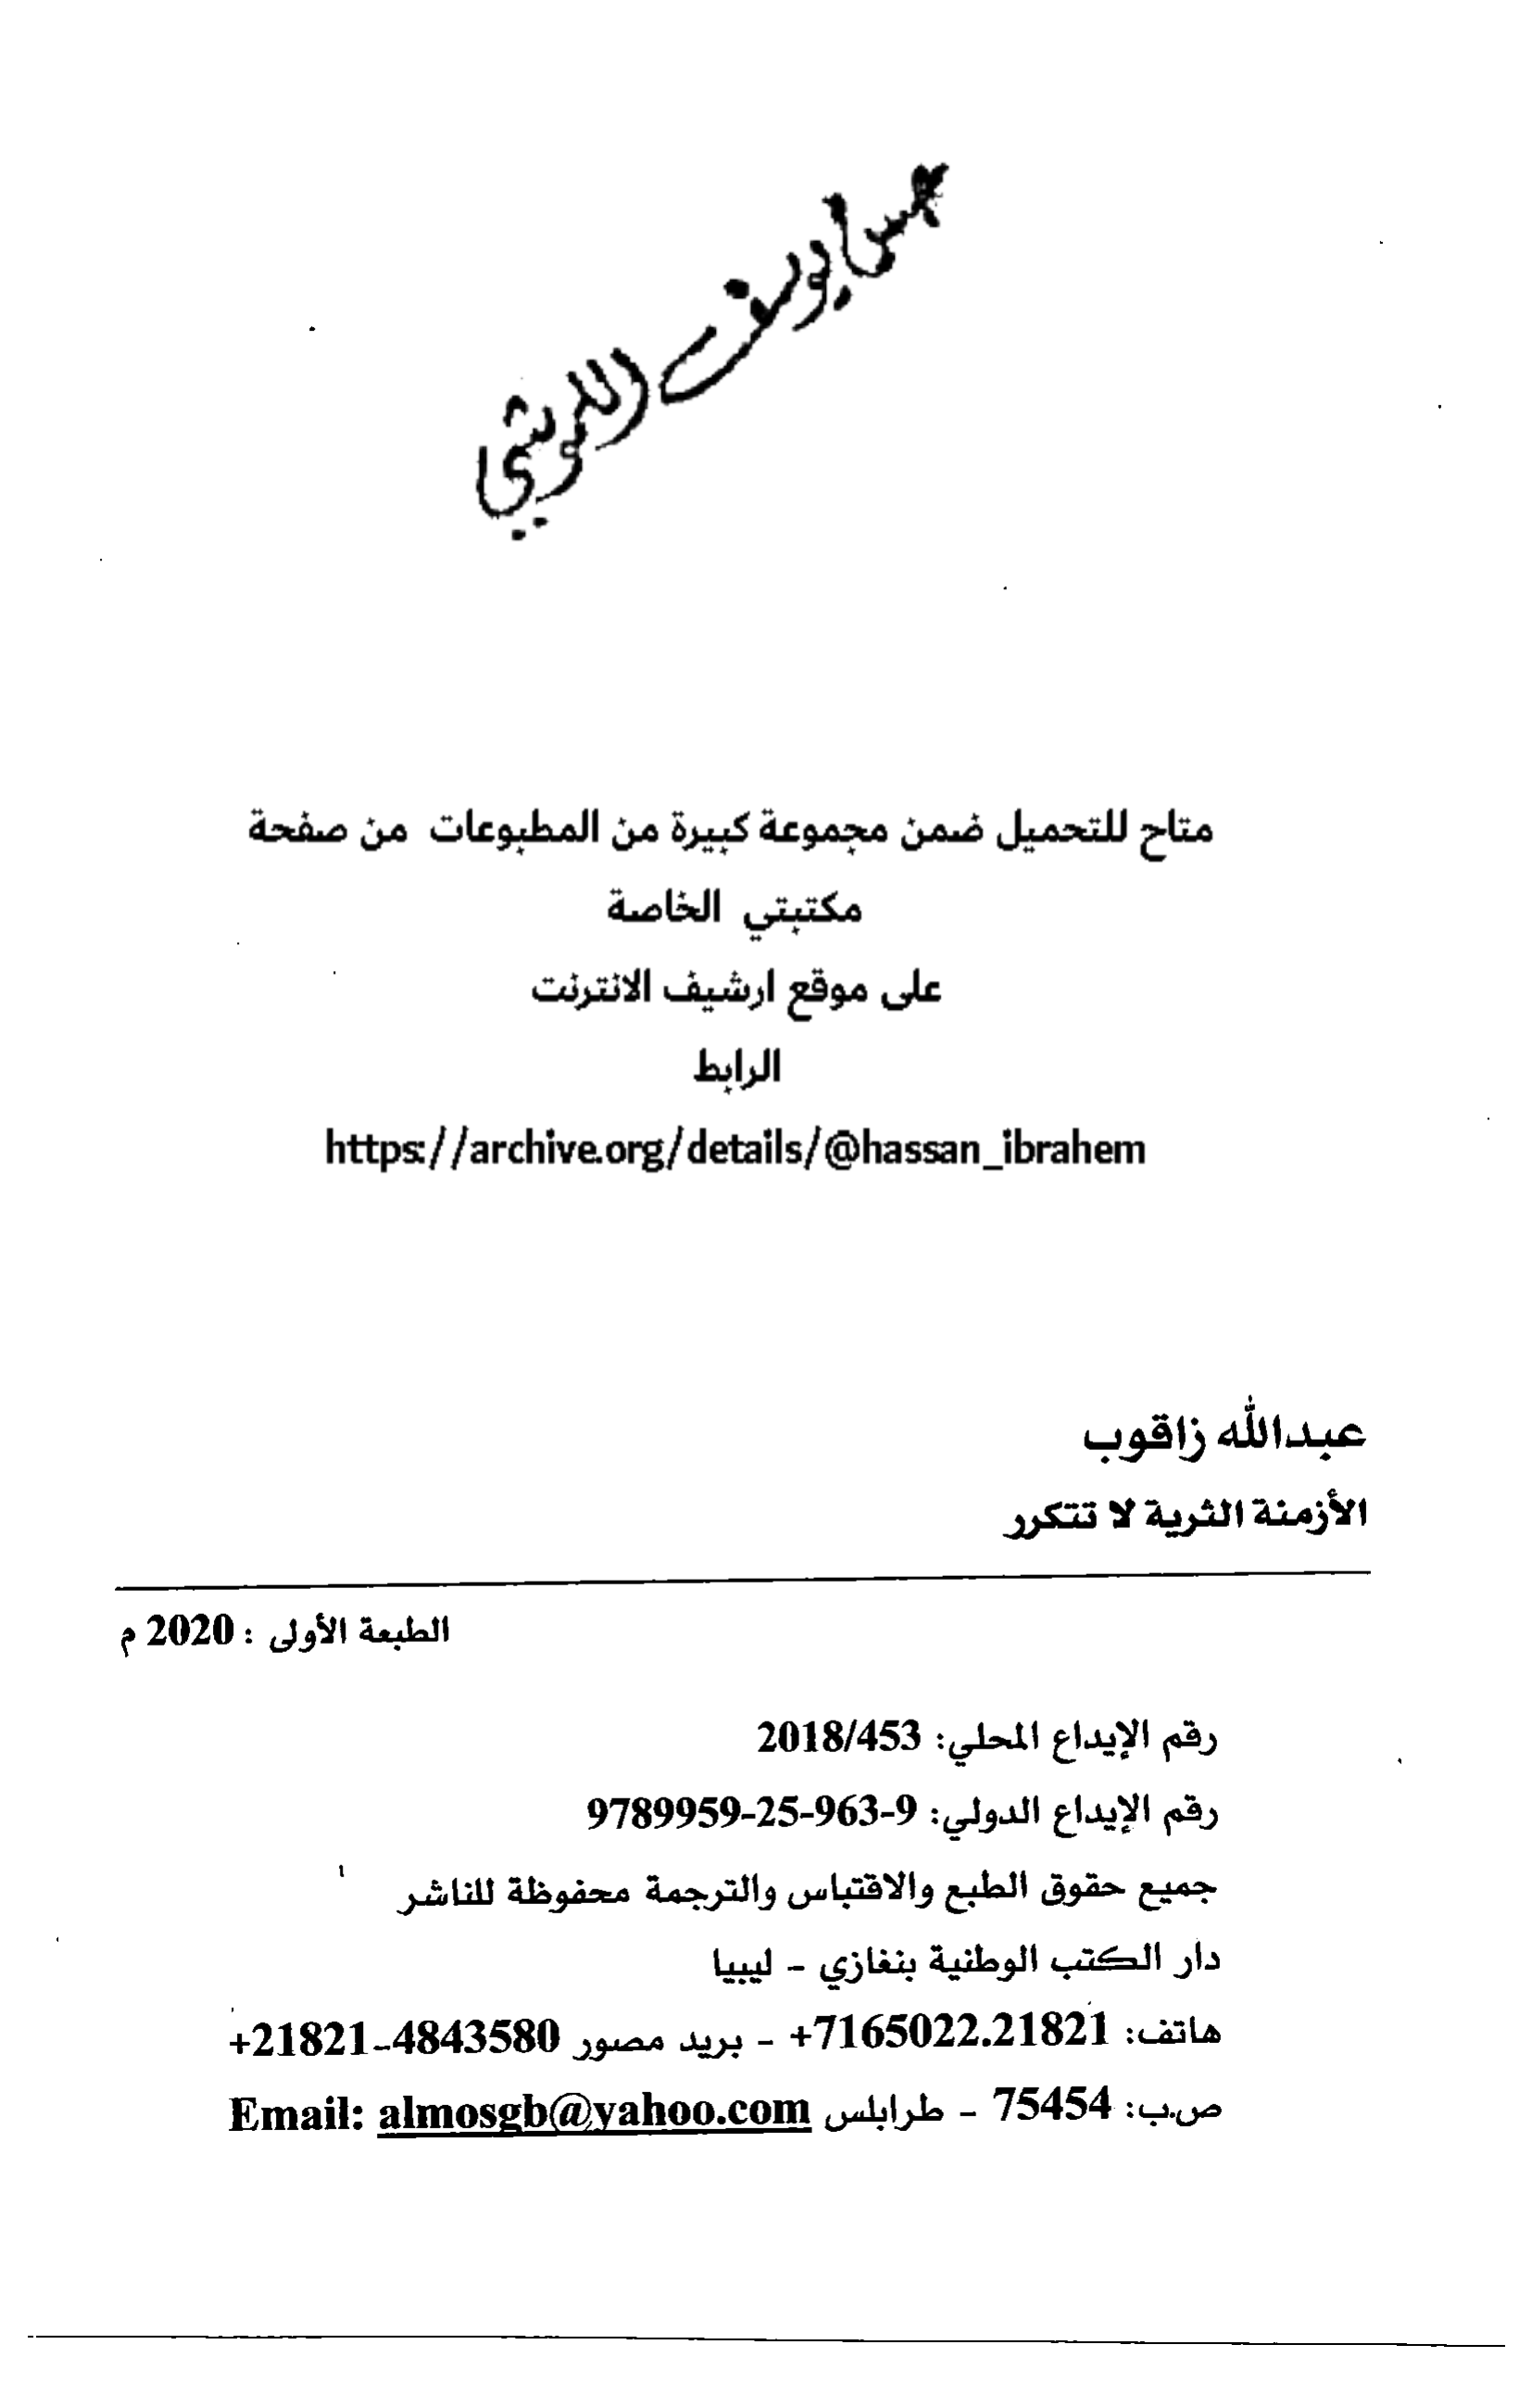 متاح للتحميل ضمن مجموعة كبيرة من المطبوعات من صفحة
مكتبتي الخاصة
على موقع ارشيف الانترنت
الرابط
https://archive.org/details/@hassan_ibrahem
عبدالله زاقوب
الأزمنة الثرية لا تتكرر
الطبعة الأولى : 2020 م
رقم الإيداع المحلي: 2018/453
رقم الإيداع الدولي: 9-963-25-9789959
جميع حقوق الطبع والاقتباس والترجمة محفوظة للناشر
دار الكتب الوطنية بنغازي - ليبيا
هاتف: 7165022.21821+ - بريد مصور 4843580-21821+
ص.ب: 75454 - طرابلس Email: almosgb@yahoo.com